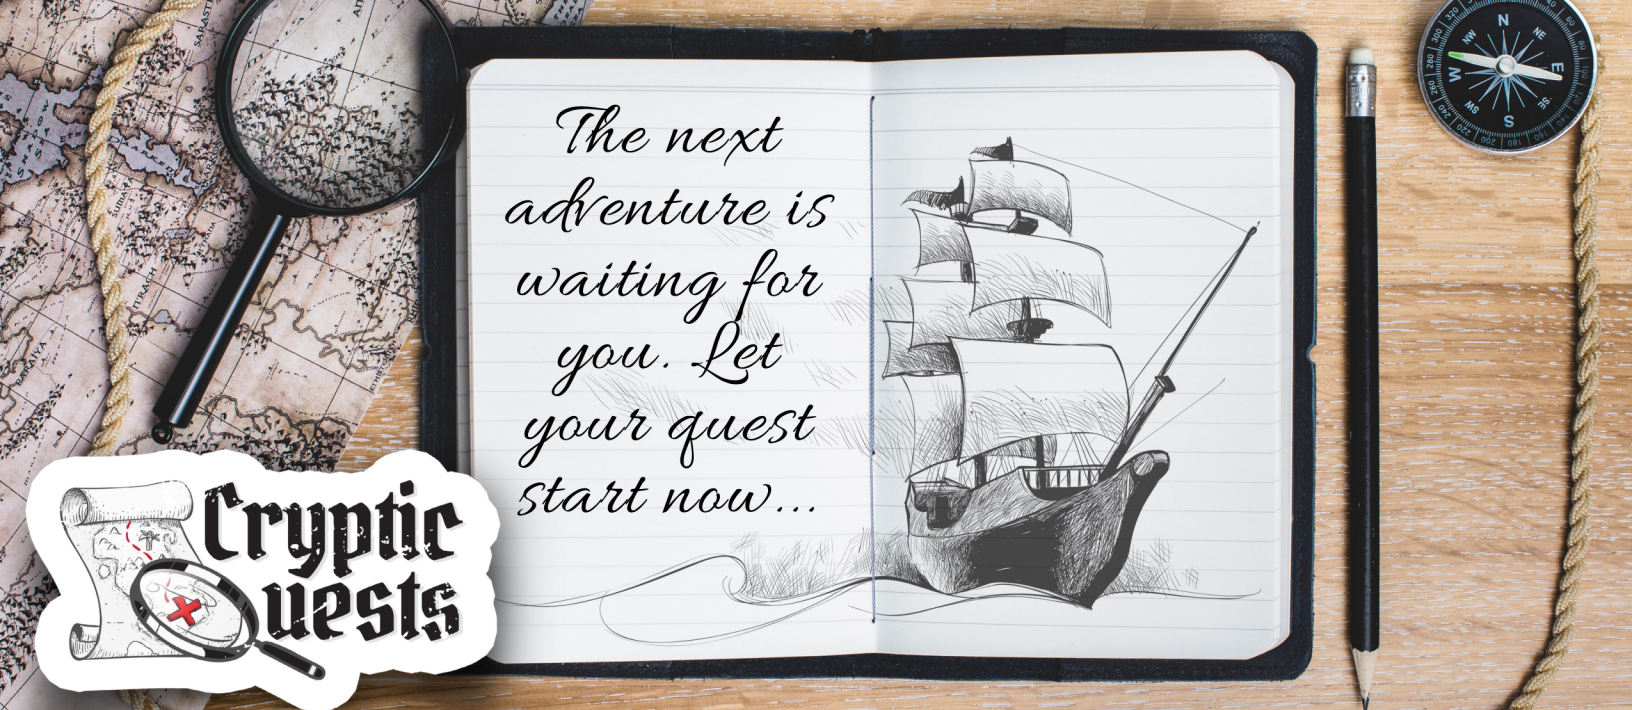 The next
adventure is
waiting for
you. Let
your quest
start now...
Cryptic
Quests
N
NE
E
SE
S
SW
W
NW